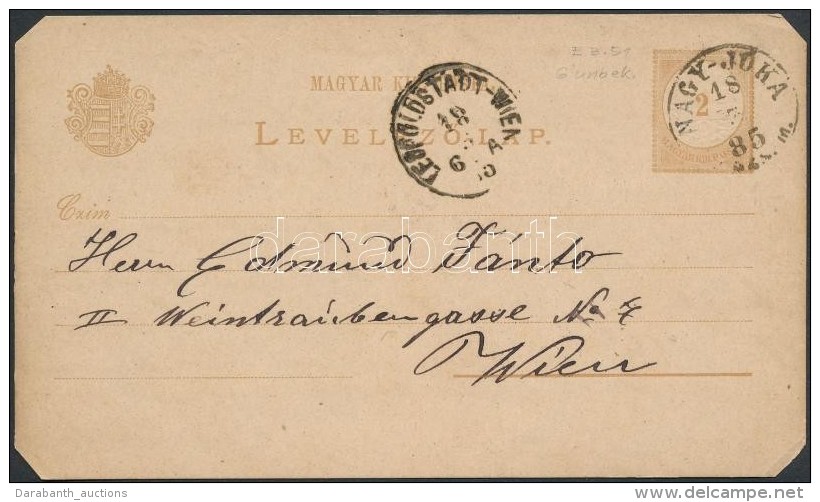 E 3.51
NAGY-JÓKA
18
85
2
MAGYAR KIR.
LEOPOLDSTADT WIEN
18
6 A
LEVELEZŐ-LAP.
Czim
darabanth
Herrn Edmund Fántó
II Weintraubengasse No 7
Wien
Darabanth_auctions
delcampe.net